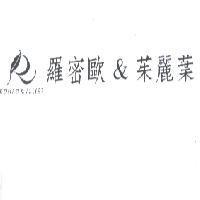 羅密歐 & 茱麗葉